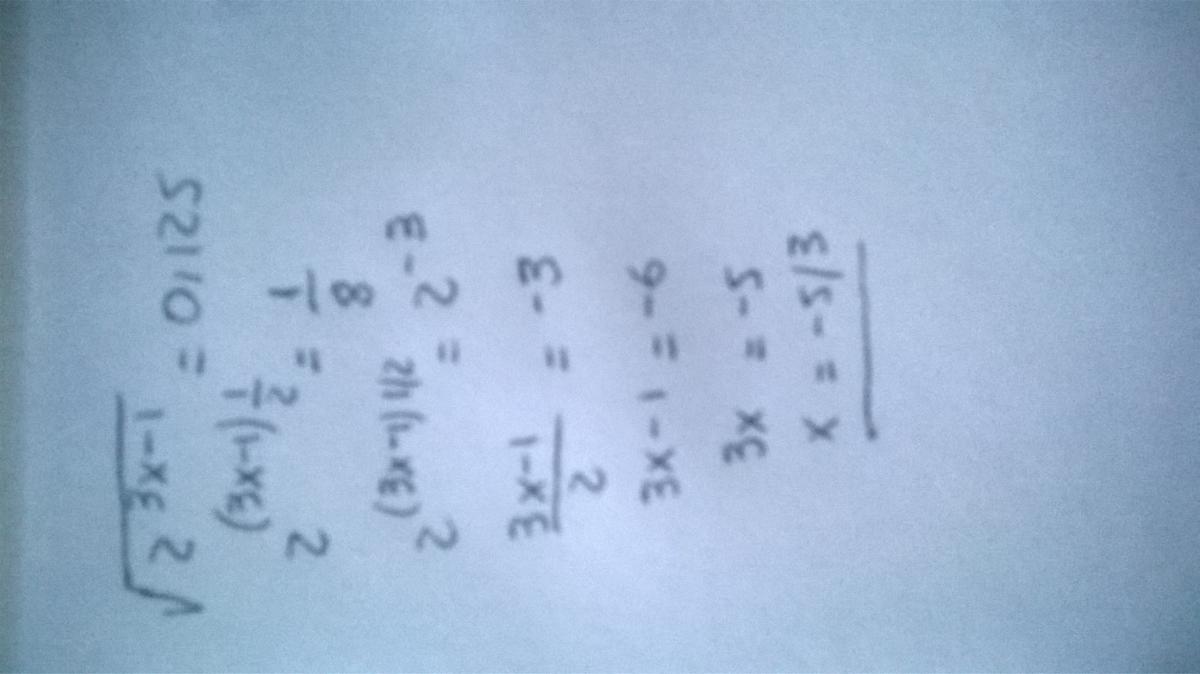 √2^(3x-1) = 0,125
2^(3x-1)^1/2 = 1/8
2^(3x-1)1/2 = 2^-3
(3x-1)/2 = -3
3x-1 = -6
3x = -5
x = -5/3